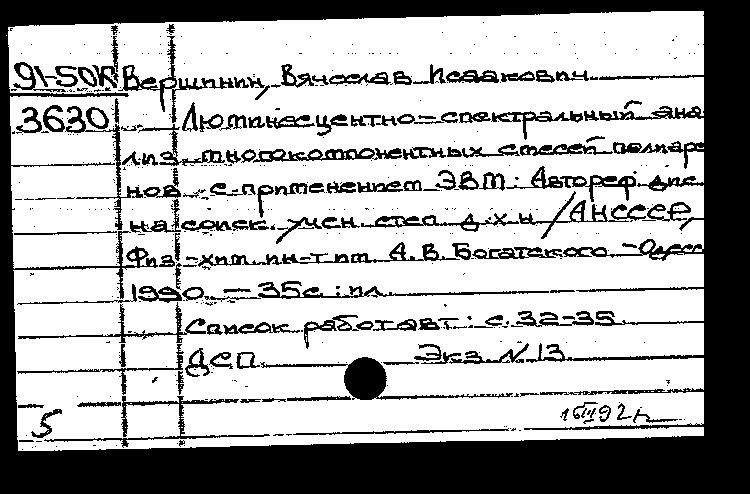 91-50К Вершинин, Вячеслав Исаакович
3630 Люминесцентно-спектральный ана-
лиз многокомпонентных смесей полиаре-
нов с применением ЭВМ: Автореф. дис.
на соиск. учен. степ. д.х.н / АН СССР,
Физ-хим. ин-т им. А. В. Богатского. - Одесс
1990. — 35с : ил.
Список работ авт : с. 32-35.
ДСП Экз. N 13
5 16 III 92 г.